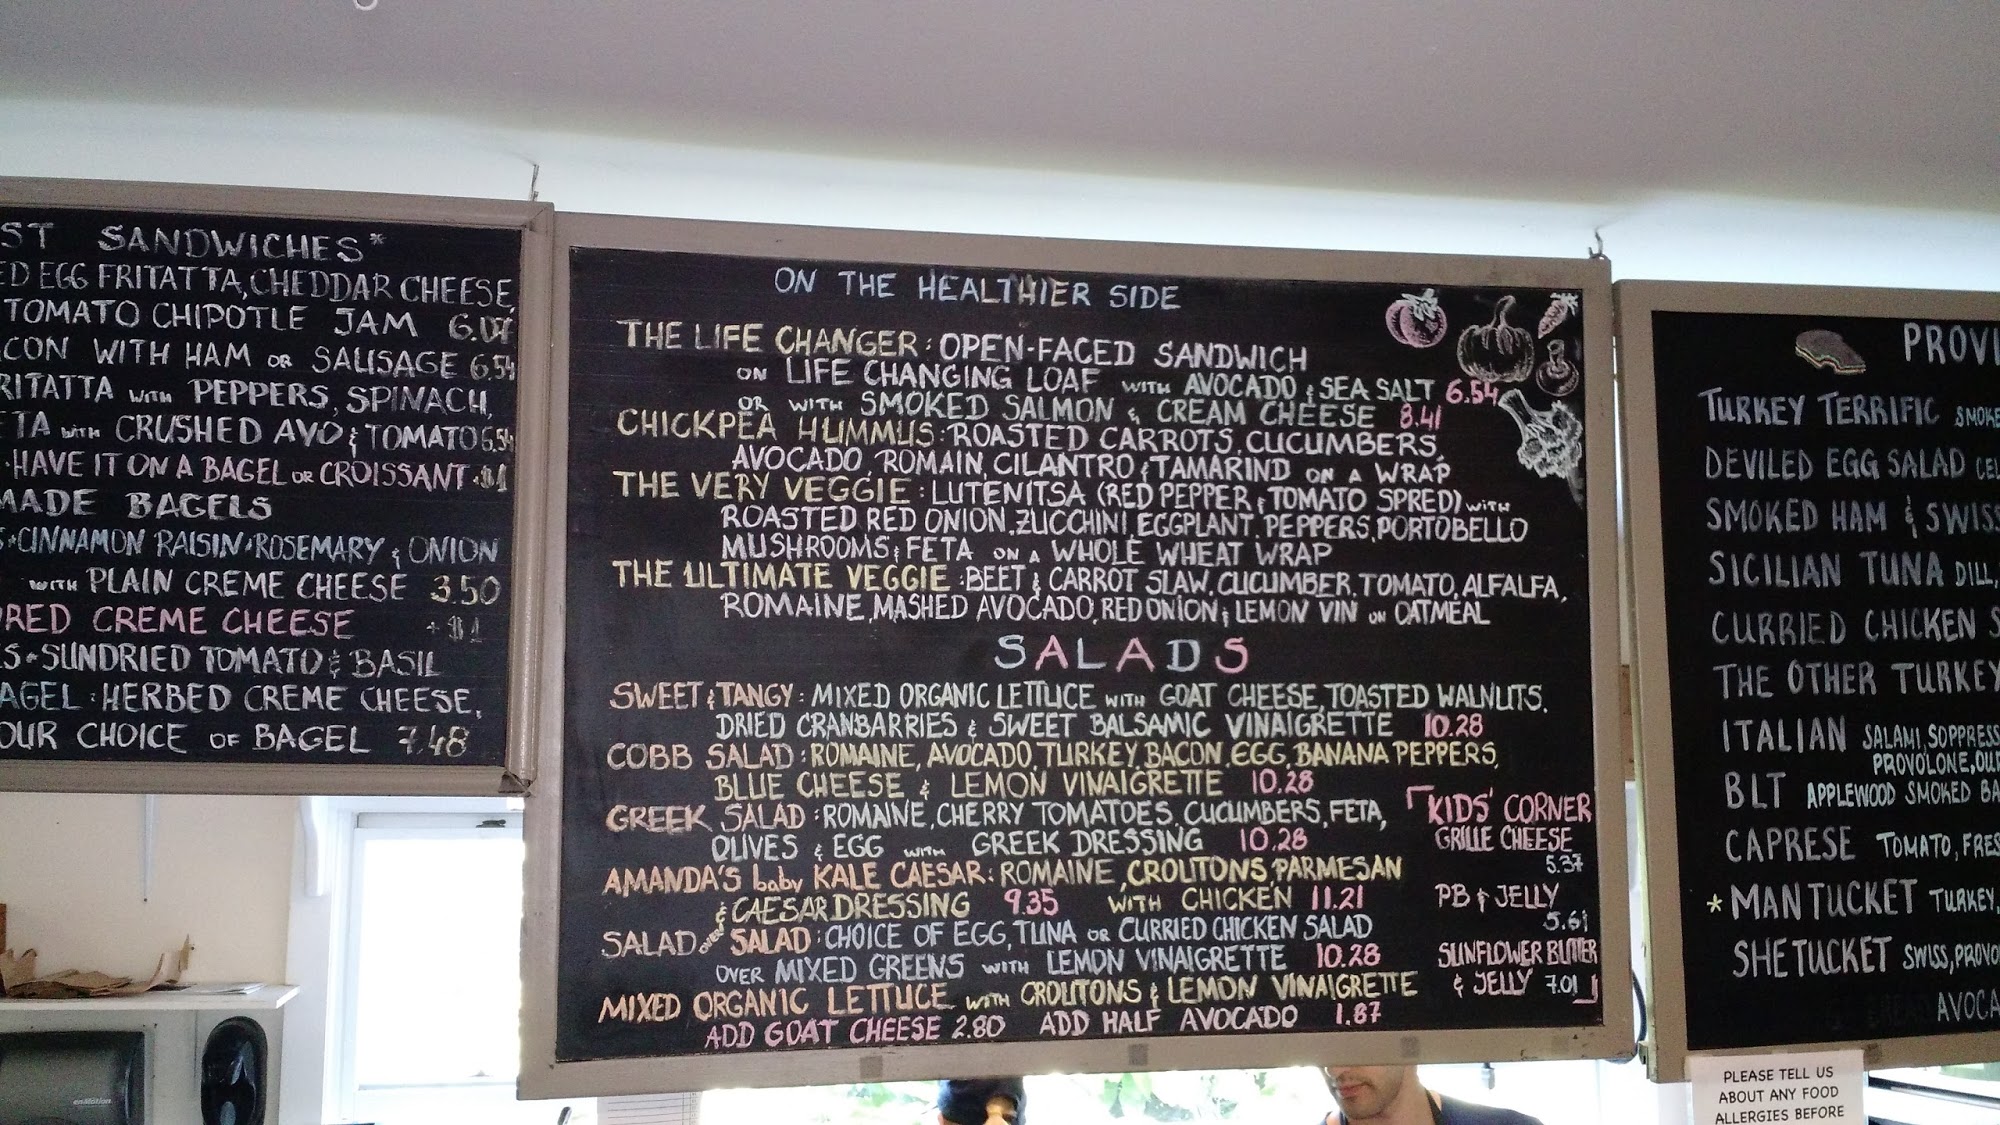 ST SANDWICHES*
ED EGG FRITATTA, CHEDDAR CHEESE,
TOMATO CHIPOTLE JAM 6.07
CON WITH HAM OR SAUSAGE 6.54
RITATTA WITH PEPPERS, SPINACH,
ETA WITH CRUSHED AVO & TOMATO 6.54
HAVE IT ON A BAGEL OR CROISSANT +$1
MADE BAGELS
S•CINNAMON RAISIN•ROSEMARY & ONION
WITH PLAIN CREME CHEESE 3.50
RED CREME CHEESE +$1
S•SUNDRIED TOMATO & BASIL
AGEL: HERBED CREME CHEESE,
OUR CHOICE OF BAGEL 7.48
ON THE HEALTHIER SIDE
THE LIFE CHANGER: OPEN-FACED SANDWICH
ON LIFE CHANGING LOAF WITH AVOCADO & SEA SALT 6.54
OR WITH SMOKED SALMON & CREAM CHEESE 8.41
CHICKPEA HUMMUS: ROASTED CARROTS, CUCUMBERS,
AVOCADO, ROMAIN, CILANTRO & TAMARIND ON A WRAP
THE VERY VEGGIE: LUTENITSA (RED PEPPER & TOMATO SPRED) WITH
ROASTED RED ONION, ZUCCHINI, EGGPLANT, PEPPERS, PORTOBELLO
MUSHROOMS & FETA ON A WHOLE WHEAT WRAP
THE ULTIMATE VEGGIE: BEET & CARROT SLAW, CUCUMBER, TOMATO, ALFALFA,
ROMAINE, MASHED AVOCADO, RED ONION & LEMON VIN ON OATMEAL
SALADS
SWEET & TANGY: MIXED ORGANIC LETTUCE WITH GOAT CHEESE, TOASTED WALNUTS,
DRIED CRANBARRIES & SWEET BALSAMIC VINAIGRETTE 10.28
COBB SALAD: ROMAINE, AVOCADO, TURKEY, BACON, EGG, BANANA PEPPERS,
BLUE CHEESE & LEMON VINAIGRETTE 10.28
GREEK SALAD: ROMAINE, CHERRY TOMATOES, CUCUMBERS, FETA,
OLIVES & EGG WITH GREEK DRESSING 10.28
AMANDA'S baby KALE CAESAR: ROMAINE, CROUTONS, PARMESAN
& CAESAR DRESSING 9.35 WITH CHICKEN 11.21
SALAD OVER SALAD: CHOICE OF EGG, TUNA OR CURRIED CHICKEN SALAD
OVER MIXED GREENS WITH LEMON VINAIGRETTE 10.28
MIXED ORGANIC LETTUCE WITH CROUTONS & LEMON VINAIGRETTE
ADD GOAT CHEESE 2.80 ADD HALF AVOCADO 1.87
KIDS' CORNER
GRILLE CHEESE
5.37
PB & JELLY
5.61
SUNFLOWER BUTTER
& JELLY 7.01
PROVI
TURKEY TERRIFIC SMOKE
DEVILED EGG SALAD CEL
SMOKED HAM & SWISS
SICILIAN TUNA DILL,
CURRIED CHICKEN S
THE OTHER TURKEY
ITALIAN SALAMI, SOPPRESS
PROVOLONE, OUR
BLT APPLEWOOD SMOKED BA
CAPRESE TOMATO, FRES
*MANTUCKET TURKEY,
SHETUCKET SWISS, PROVO
AVOCA
PLEASE TELL US
ABOUT ANY FOOD
ALLERGIES BEFORE
enMotion